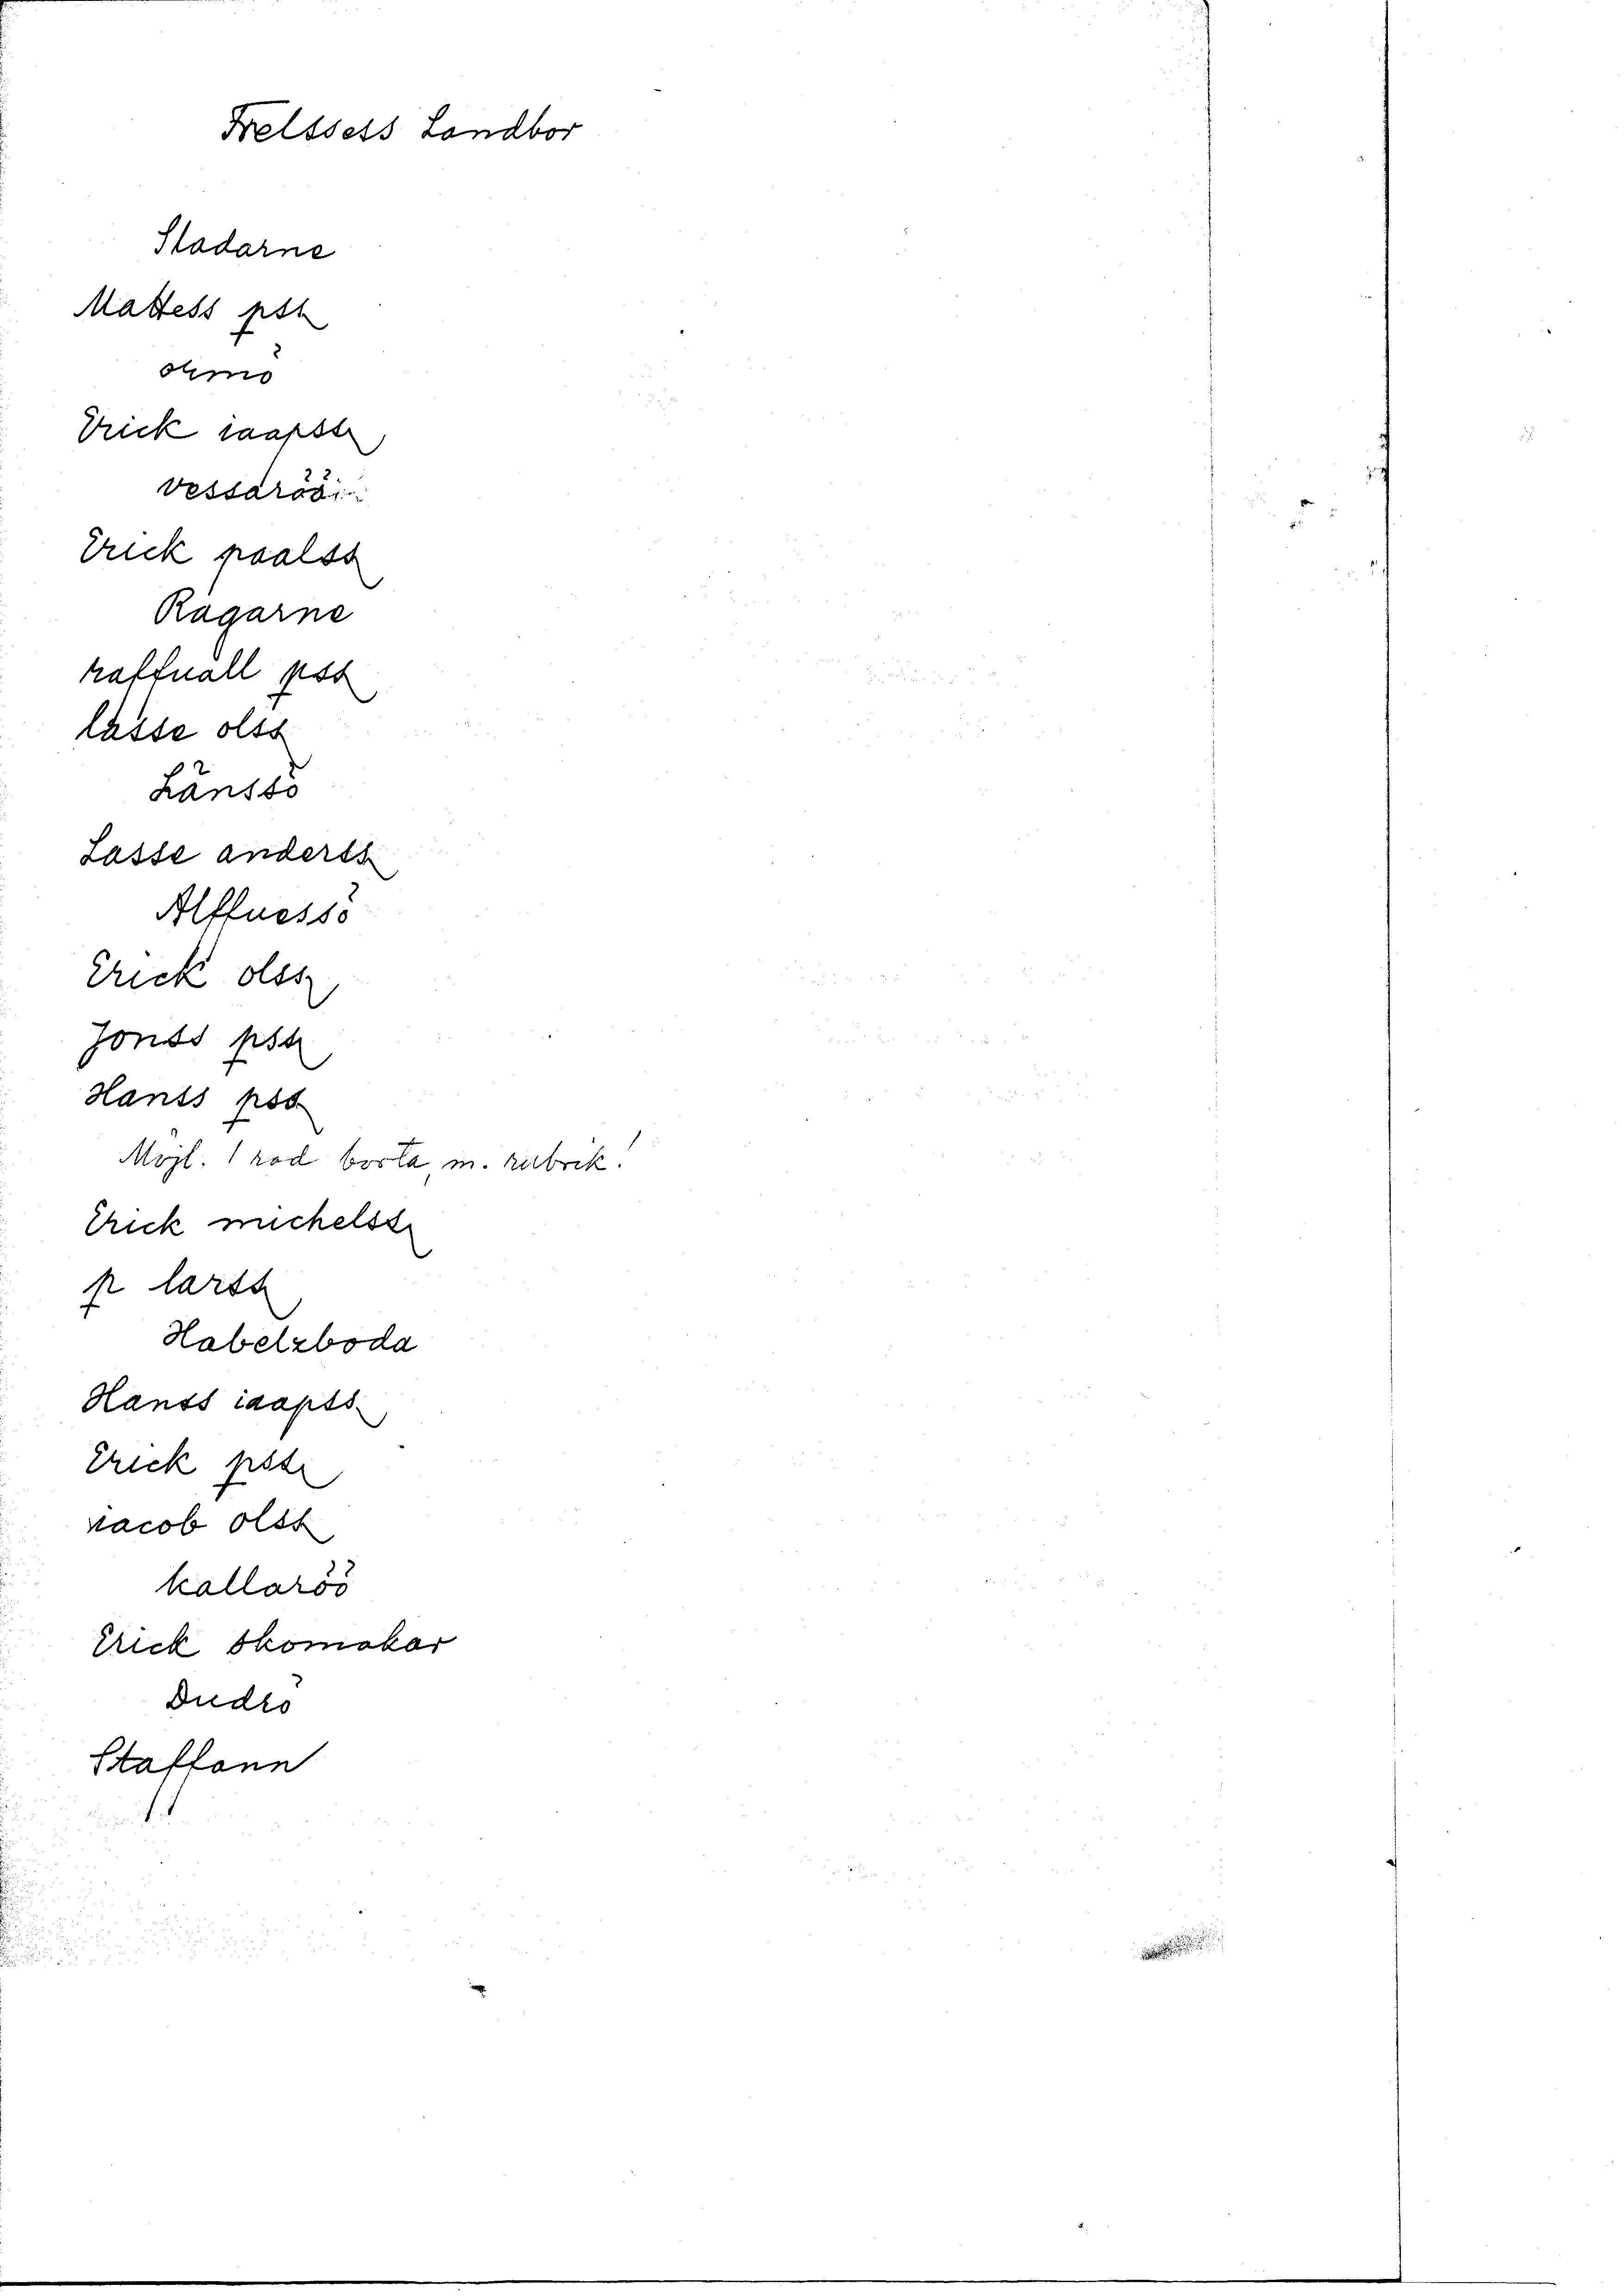 Frelssess Landbor
Sladarne
Mattess pss
ohmö
Erick iaapss
vessaröö
Erick paalss
Ragarne
raffuall pss
lasse olss
Länssö
Lasse anderss
Alffuessö
Erick olss
Jonss pss
Hanss pss
Möjl. 1 rad borta, m. rubrik!
Erick michelss
p larss
Habelzboda
Hanss iaapss
Erick pss
iacob olss
kallaröö
Erick skomakar
Dudrö
Staffann